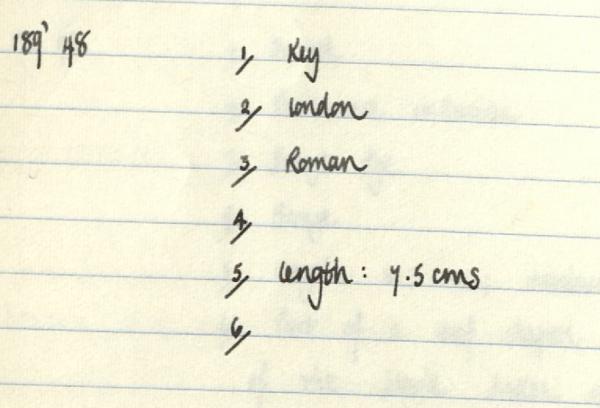 189' 48
1/ Key
2/ London
3/ Roman
4/
5/ length: 7.5 cms
6/